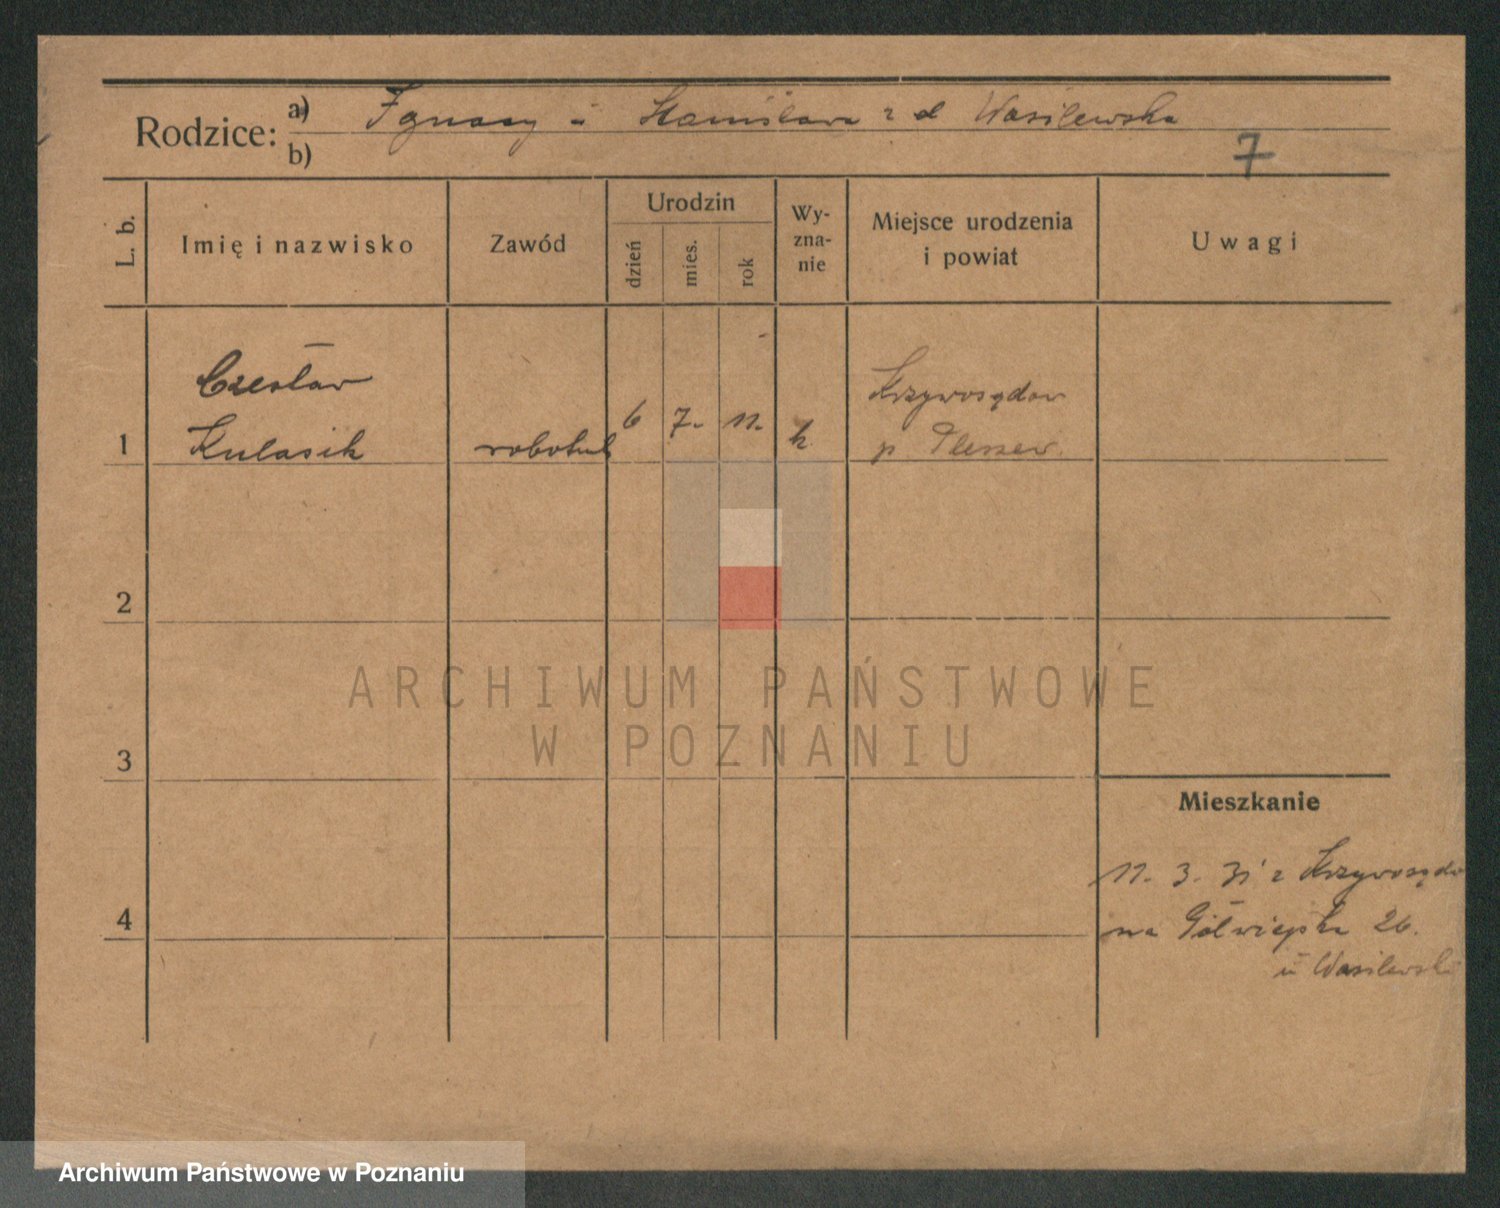 Rodzice: a) Ignacy i Stanisława z d Wasilewska
b)
7
L. b.
Imię i nazwisko
Zawód
Urodzin
dzień
mies.
rok
Wy-
zna-
nie
Miejsce urodzenia
i powiat
Uwagi
Czesław
Kulasik
1
robotnik
6
7.
11.
k
Krzywosądów
p Pleszew.
2
ARCHIWUM PAŃSTWOWE
W POZNANIU
3
Mieszkanie
11. 3. 31 z Krzywosądów
na Półwiejska 26.
u Wasilewski
4
Archiwum Państwowe w Poznaniu